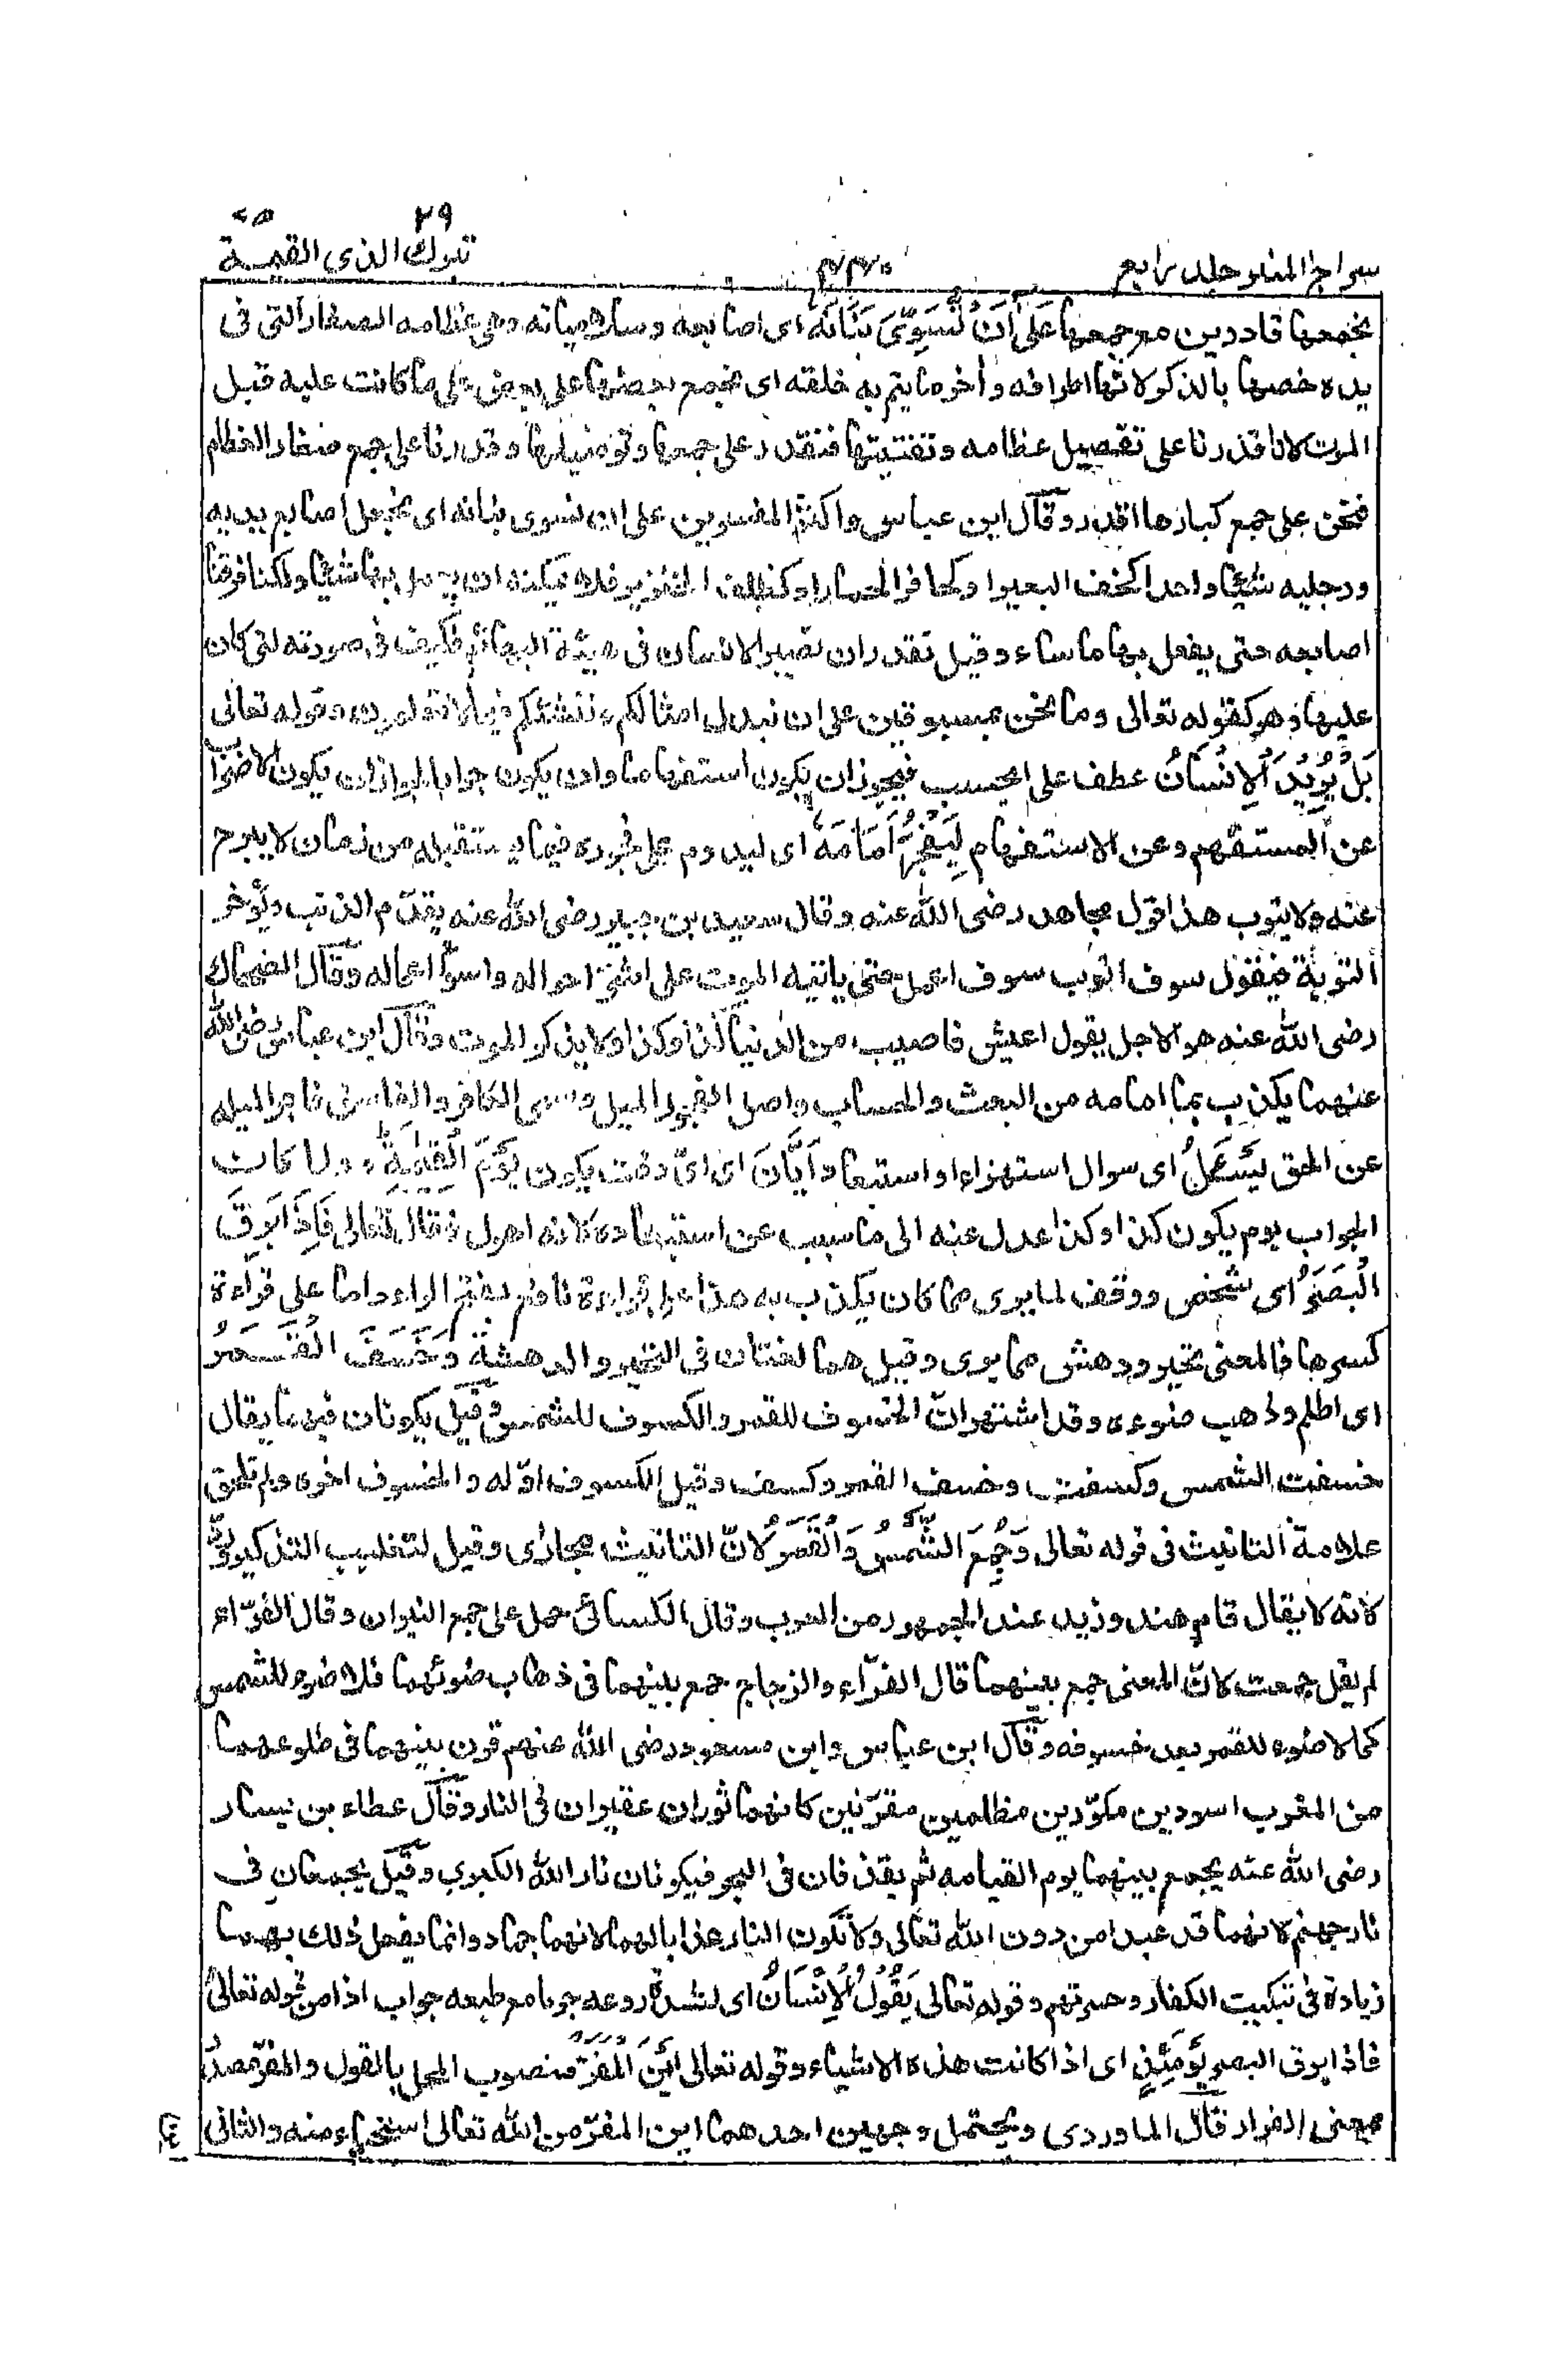 ٢٩ ٧٥
سراج المنير جلد رابع ٤٣٧ تبرك الذى القيمة
نجمعها قادرين مع جمعها عَلٰى اَنْ نُّسَوِّىَ بَنَانَهٗ اى اصابعه وسلامياته وهى عظامه الصغار التى فى
يده خصها بالذكر لانها اطرافه وأخر ما يتم به خلقه اى نجمع بعضها على بعض على ما كانت عليه قبل
الموت لانا قدرنا على تفصيل عظامه وتفتيتها فنقدر على جمعها وتوصيلها وقدرنا على جمع صغار العظام
فنحن على جمع كبارها اقدر وقال ابن عباس واكثر المفسرين على ان نسوى بنانه اى نجعل اصابع يديه
ورجليه شيئا واحدا كخف البعير او كحافر الحمار او كظلف الخنزير فلا يمكنه ان يعمل بها شيئا ولكنا فرقنا
اصابعه حتى يفعل بها ما شاء وقيل نقدر ان نصير الانسان فى هيئة البهائم فكيف فى صورته التى كان
عليها وهو كقوله تعالى وما نحن بمسبوقين على ان نبدل امثالكم وننشئكم فيما لا تعلمون وقوله تعالى
بَلْ يُرِيْدُ الْاِنْسَانُ عطف على ايحسب فيجوز ان يكون استفهاما وان يكون جوابا لجواز ان يكون الاضراب
عن المستفهم وعن الاستفهام لِيَفْجُرَ اَمَامَهٗ اى ليدوم على فجوره فيما يستقبله من زمان لا يبرح
عنه ولا يتوب هذا قول مجاهد رضى الله عنه وقال سعيد بن جبير رضى الله عنه يقدّم الذنب ويؤخر
التوبة فيقول سوف اتوب سوف اعمل حتى ياتيه الموت على اشرّ احواله واسوأ اعماله وقال الضحاك
رضى الله عنه هو الاجل يقول اعيش فاصيب من الدنيا كذا وكذا ولا يذكر الموت وقال ابن عباس رضى الله
عنهما يكذب بما امامه من البعث والحساب واصل الفجور الميل وسمى الكافر والفاسق فاجرا لميله
عن الحق يَسْئَلُ اى سوال استهزاء او استبعاد اَيَّانَ اى اىّ وقت يكون يَوْمُ الْقِيٰمَةِ ولما كان
الجواب يوم يكون كذا وكذا عدل عنه الى ما سبب عن استبعاده لانه اهول فقال تعالى فَاِذَا بَرِقَ
الْبَصَرُ اى شخص ووقف لما يرى مما كان يكذب به هذا على قراءة نافع بفتح الراء واما على قراءة
كسرها فالمعنى تحير ودهش مما يرى وقيل هما لغتان فى التحير والدهشة وَخَسَفَ الْقَمَرُ
اى اظلم وذهب ضوءه وقد اشتهر ان الخسوف للقمر والكسوف للشمس وقيل يكونان فيهما يقال
خسفت الشمس وكسفت وخسف القمر وكسف وقيل الكسوف اوّله والخسوف اخره ولم تلحق
علامة التانيث فى قوله تعالى وَجُمِعَ الشَّمْسُ وَالْقَمَرُ لانّ التانيث مجازى وقيل لتغليب التذكير ورُدّ
لانه لا يقال قام هند وزيد عند الجمهور من العرب وقال الكسائى حمل على جمع النيران وقال الفرّاء
لم يقل جمعت لانّ المعنى جمع بينهما قال الفرّاء والزجاج جمع بينهما فى ذهاب ضوئهما فلا ضوء للشمس
كما لا ضوء للقمر بعد خسوفه وقال ابن عباس وابن مسعود رضى الله عنهم قرن بينهما فى طلوعهما
من المغرب اسودين مكوّرين مظلمين مقرّنين كانهما ثوران عقيران فى النار وقال عطاء بن يسار
رضى الله عنه يجمع بينهما يوم القيامه ثم يقذفان فى البحر فيكونان نار الله الكبرى وقيل يجمعان فى
نار جهنم لانهما قد عبدا من دون الله تعالى ولا تكون النار عذابا لهما لانهما جماد وانما يفعل ذلك بهما
زيادة فى تبكيت الكفار وحسرتهم وقوله تعالى يَقُوْلُ الْاِنْسَانُ اى لشدة روعه جريا مع طبعه جواب اذا من قوله تعالى
فاذا برق البصر يَوْمَئِذٍ اى اذا كانت هذه الاشياء وقوله تعالى اَيْنَ الْمَفَرُّ منصوب المحل بالقول والمفرّ مصدر
بمعنى الفرار قال الماوردى ويحتمل وجهين احدهما اين المفرّ من الله تعالى استحياء منه والثانى